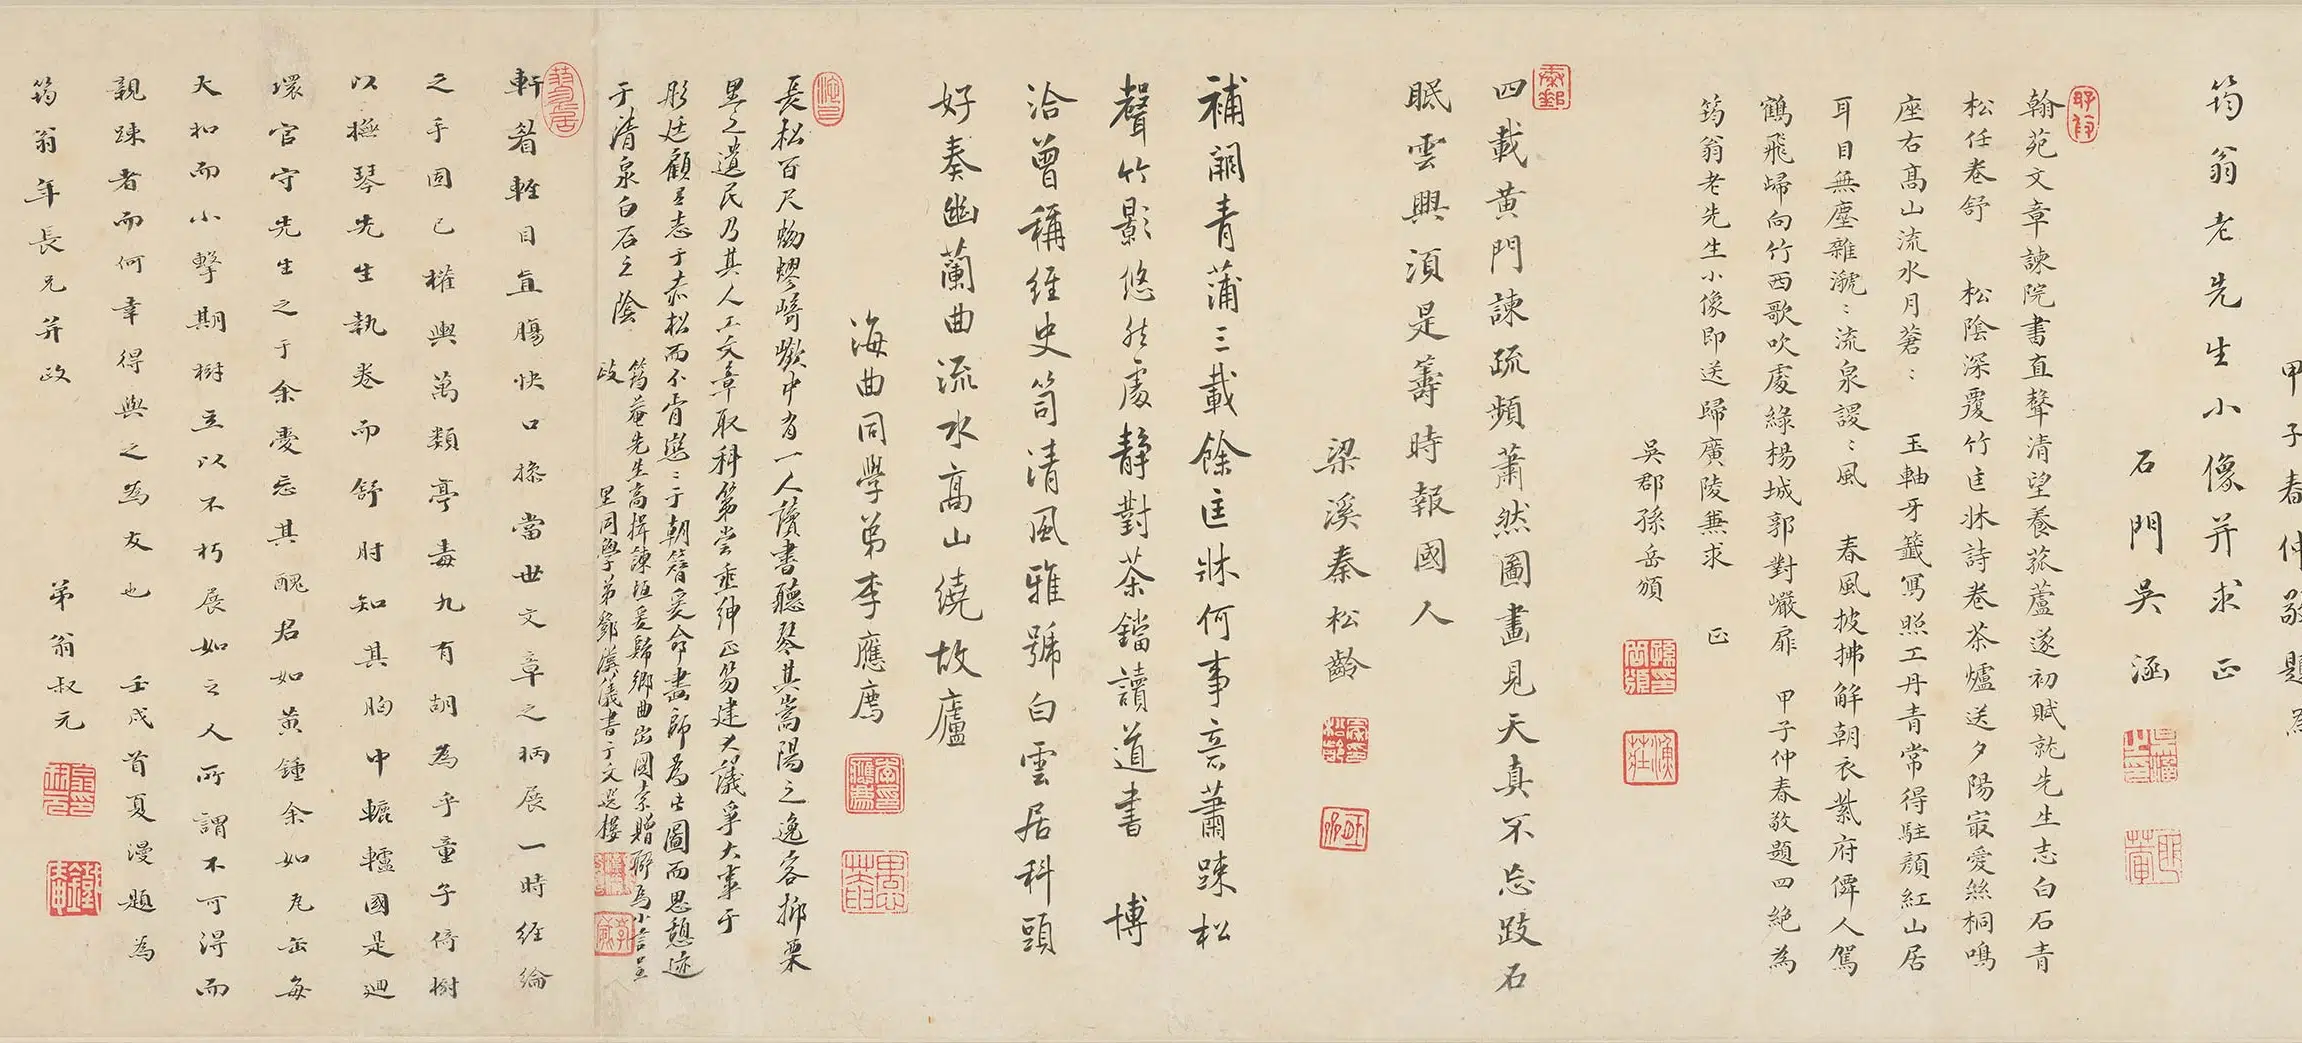 甲子春仲敬題為
筠翁老先生小像并求正
石門吳涵
翰苑文章諫院書直聲清望養菰蘆遂初賦就先生志白石青
松任卷舒 松陰深覆竹匡牀詩卷茶爐送夕陽最愛絲桐鳴
座右髙山流水月蒼: 玉軸牙籤寫照工丹青常得駐顏紅山居
耳目無塵雜瀧:流泉謖:風 春風披拂解朝衣紫府僊人駕
鶴飛歸向竹西歌吹處綠楊城郭對巖扉 甲子仲春敬題四絕為
筠翁老先生小像即送歸廣陵兼求 正
吳郡孫岳頒
四載黃門諫疏頻蕭然圖畫見天真不忘跂石
眠雲興須是籌時報國人
梁溪秦松齡
補闕青蒲三載餘匡牀何事音蕭踈松
聲竹影悠然處靜對茶鐺讀道書 博
洽曾稱經史笥清風雅號白雲居科頭
好奏幽蘭曲流水高山繞故廬
海曲同學弟李應廌
長松百尺蚴蟉崎嶔中有一人讀書聽琴其嵩陽之逸客抑栗
里之遺民乃其人工文章取科第嘗垂紳正笏建大議爭大事于
彤廷顧有志于赤松而不肯戀:于朝簪爰命畫師為此圖而思憩迹
于清泉白石之陰
筠菴先生高揖諫垣爰歸鄉曲出圖索贈聊為小言呈
政
里同學弟鄧漢儀書于文選樓
軒着輊目直腸快口操當世文章之柄展一時經綸
之手固已權輿萬類亭毒九有胡為乎童子倚樹
以撫琴先生執卷而舒肘知其胸中轆轤國是迴
環官守先生之于余憂忘其醜君如黃鍾余如瓦缶每
大扣而小擊期樹立以不朽展如之人所謂不可得而
親踈者而何幸得與之為友也 壬戌首夏漫題為
筠翁年長兄并政
弟翁叔元